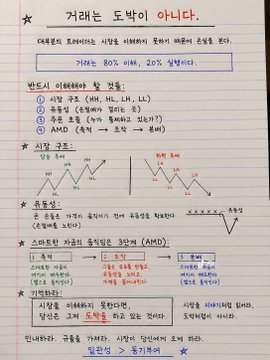 ★ 거래는 도박이 아니다.
대부분의 트레이더는 시장을 이해하지 못하기 때문에 손실을 본다.
거래는 80% 이해, 20% 실행이다.
반드시 이해해야 할 것들:
① 시장 구조 (HH, HL, LH, LL)
② 유동성 (손절매가 걸리는 곳)
③ 주문 흐름 (누가 통제하고 있는가?)
④ AMD (축적 → 조작 → 분배)
★ 시장 구조:
상승 추세
하락 추세
HH
HH
HL
HL
LH
LH
LL
LL
★ 유동성:
큰 손들은 가격이 움직이기 전에 유동성을 확보한다
(손절매를 노린다).
xxxxxx
유동성
★ 스마트한 자금의 움직임은 3단계 (AMD):
1. 축적 → 2. 조작 → 3. 분배
스마트한 자금이
여기서 매수한다
★ 기억하라:
시장을 이해하지 못한다면,
당신은 그저 도박을 하고 있는 것이다.
시장을 이야기처럼 읽어라.
인내하라. 규율을 가져라. 시장이 당신에게 오게 하라.
일관성 > 동기부여
★